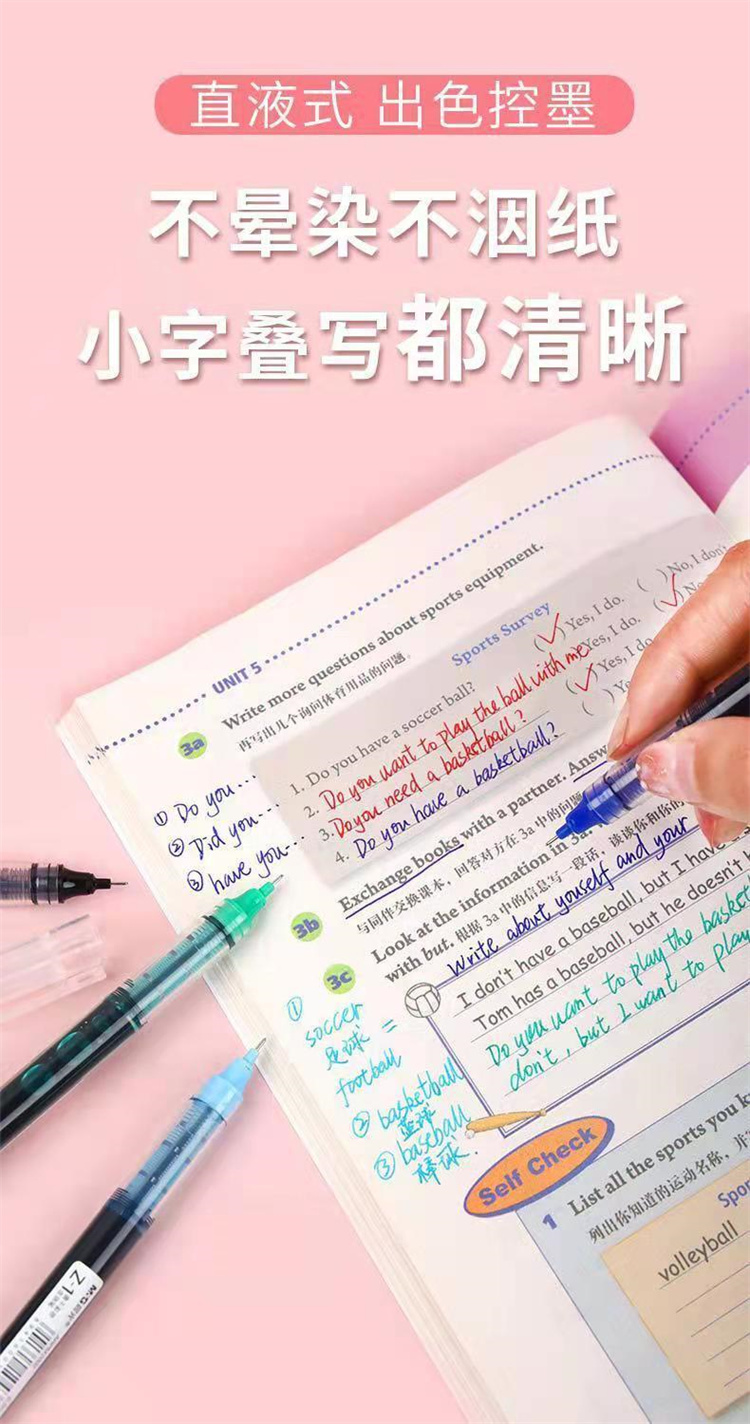 直液式 出色控墨
不晕染不洇纸
小字叠写都清晰
UNIT 5
3a
Write more questions about sports equipment.
再写出几个询问体育用品的问题。
Sports Survey
1. Do you have a soccer ball?
( ✓ ) Yes, I do. ( ) No, I don't
2. Do you want to play the ball with me
Yes, I do. ( ✓ ) No
3. Do you need a basketball?
( ✓ ) Yes, I do
4. Do you have a basketball?
( )
① Do you...
② Did you...
③ have you...
3b
Exchange books with a partner. Answ
与同伴交换课本，回答对方在 3a 中的问题
3c
Look at the information in 3a.
with but. 根据 3a 中的信息写一段话，谈谈你和你的
Write about youself and your
I don't have a baseball, but I have
Tom has a baseball, but he doesn't
Do you want to play the basket
don't, but I want to play
①
soccer
足球 =
football
② basketball
篮球
③ baseball
棒球.
Self Check
1 List all the sports you k
列出你知道的运动名称，并
Spor
volleyball
M&G
Z-1